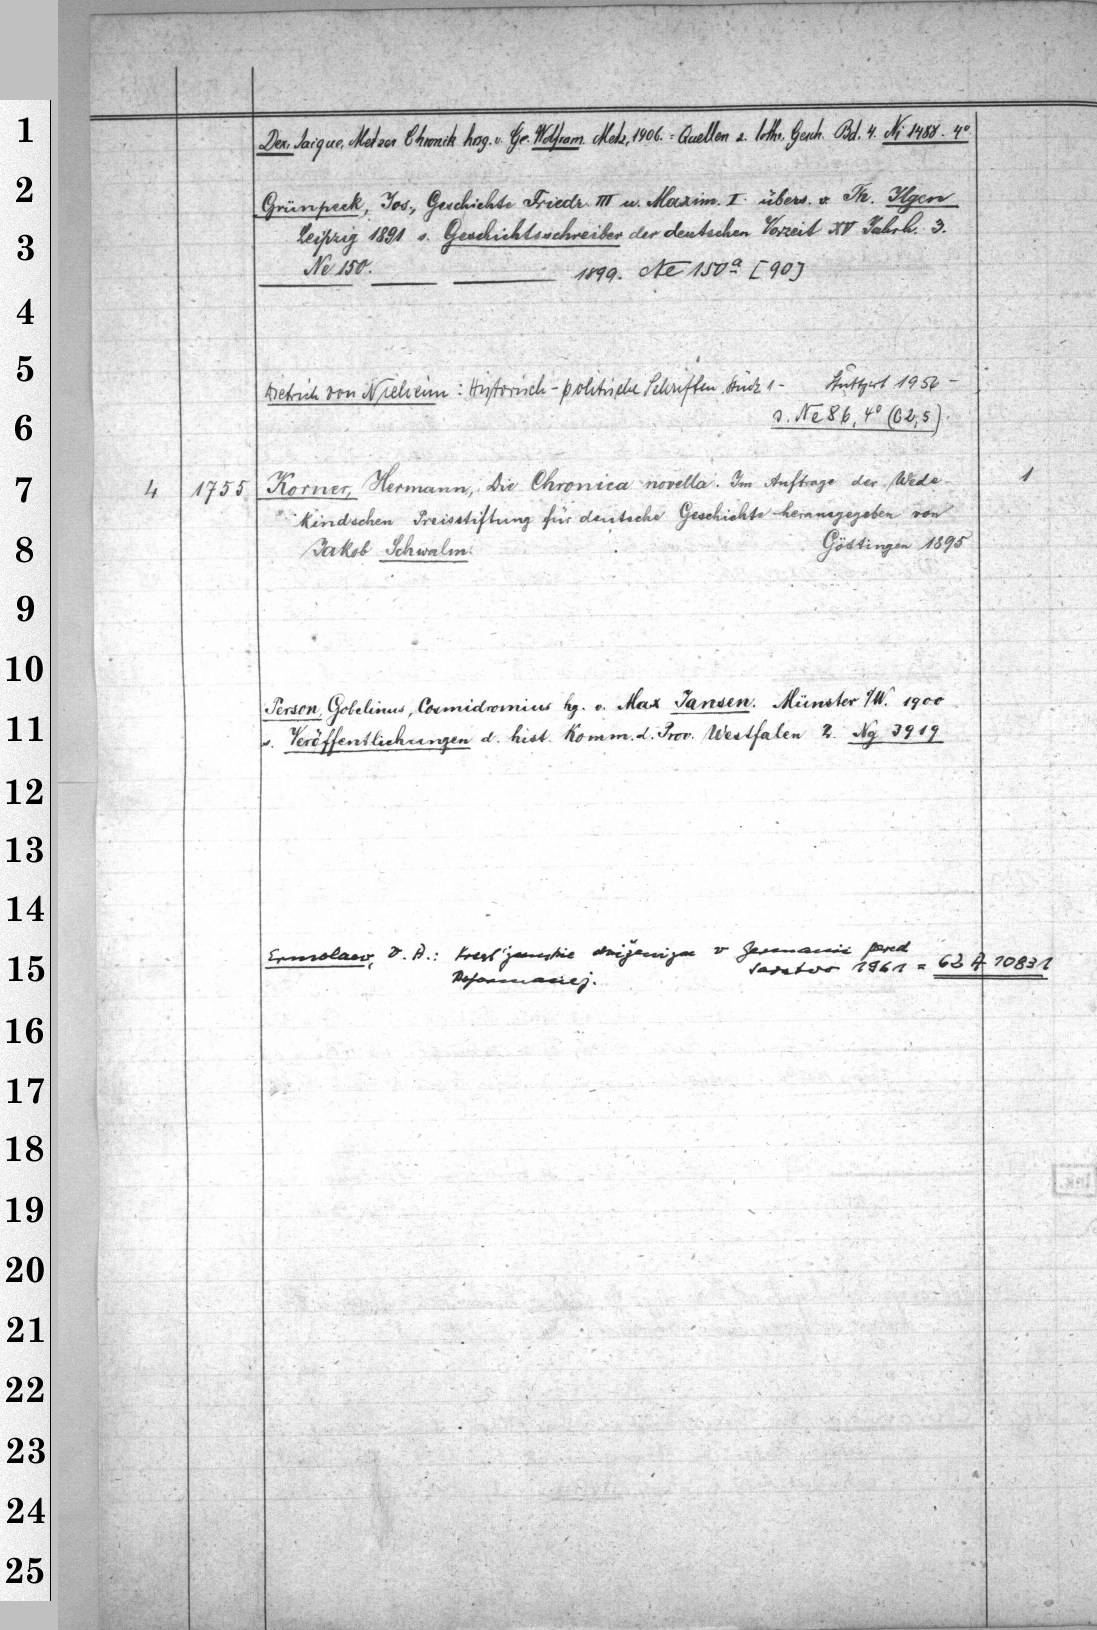 1
Dex, Jaique, Metzer Chronik hrsg. v. Ge. Wolfram. Metz, 1906. = Quellen z. lothr. Gesch. Bd. 4. Ni 1488. 4°
2
Grünpeck, Jos., Geschichte Friedr. III u. Maxim. I. übers. v. Th. Ilgen
3
Leipzig 1891 s. Geschichtsschreiber der deutschen Vorzeit XV Jahrh. 3.
Ne 150.
1899. Ne 150a [90]
4
5
Dietrich von Nieheim: Historisch-politische Schriften. Stück 1- Stuttgart 1956 -
6
s. Ne 86, 4° (62,5).
7
4 1755 Korner, Hermann, Die Chronica novella. Im Auftrage der Wede- 1
kindschen Preisstiftung für deutsche Geschichte herausgegeben von
8
Jakob Schwalm. Göttingen 1895
9
10
Person, Gobelinus, Cosmidromius hg. v. Max Jansen. Münster i/W. 1900
11
s. Veröffentlichungen d. hist. Komm. d. Prov. Westfalen 2. Ng 3919
12
13
14
Ermolaev, V. A.: Krest'janskie dviženija v Germanii pered
15
Saratov 1961 = 62 A 10831
Reformaciej.
16
17
18
19
20
21
22
23
24
25